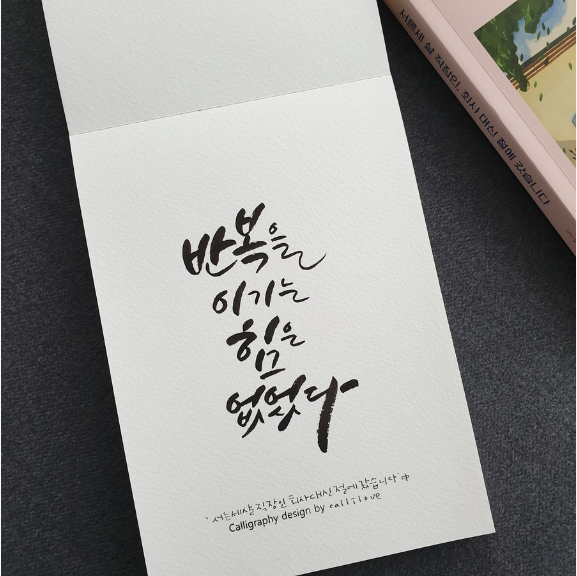 반복을
이기는
힘은
없었다
'서른세살 직장인, 회사 대신 절에 갔습니다' 中
Calligraphy design by callilove
서른세 살 직장인, 회사 대신 절에 갔습니다